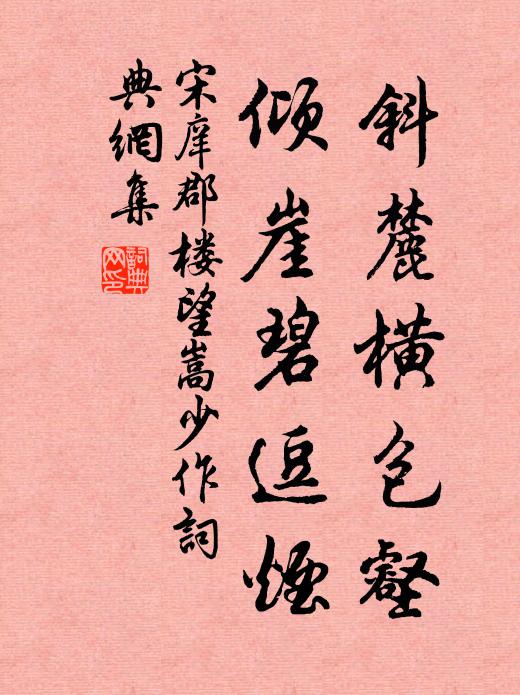 斜麓横包壑
倾崖碧逗烟
宋庠郡楼望嵩少作词
典網集
詞典
网印